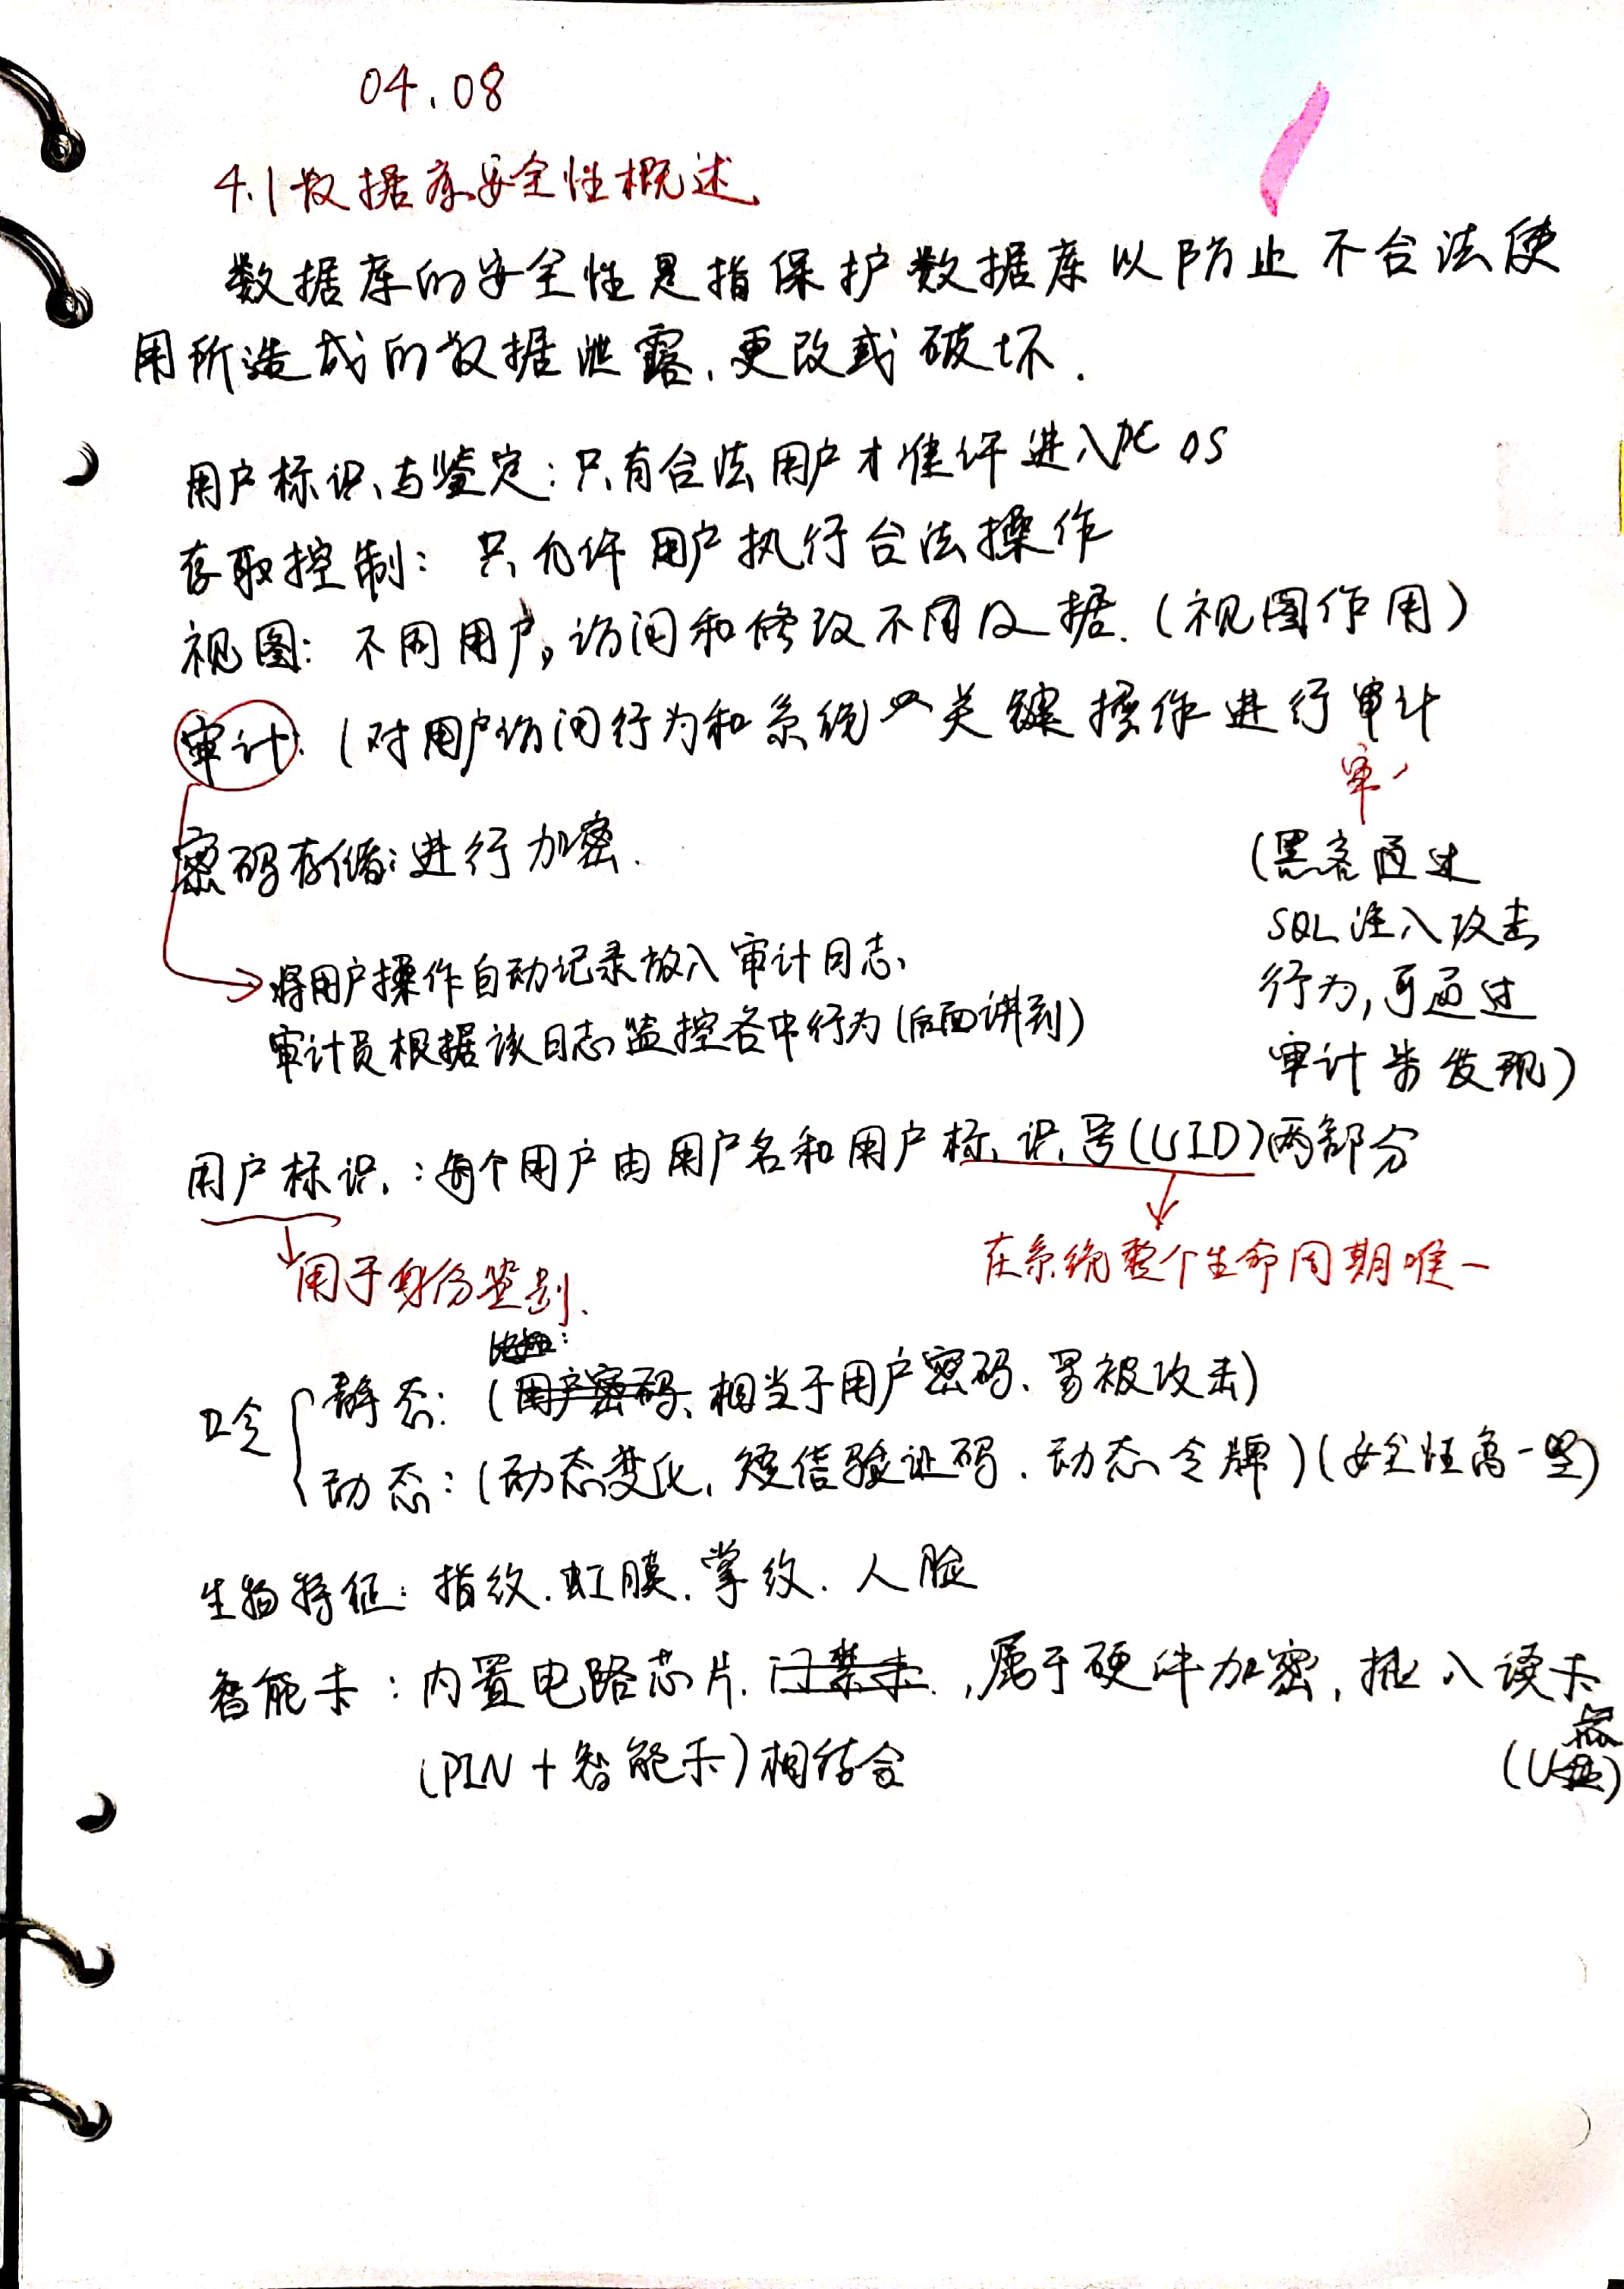 04.08
4.1数据库安全性概述
数据库的安全性是指保护数据库以防止不合法使
用所造成的数据泄露、更改或破坏.
用户标识与鉴定:只有合法用户才准许进入 OS
存取控制: 只允许用户执行合法操作
视图: 不同用户,访问和修改不同数据.(视图作用)
审计:(对用户访问行为和系统 关键操作进行审计
审
密码存储:进行加密.
(黑客通过
SQL注入攻击
行为,可通过
审计 发现)
将用户操作自动记录放入审计日志、
审计员根据该日志监控各中行为(后面讲到)
用户标识:每个用户由用户名和用户标识号(UID)两部分
用于身份鉴别.
在系统整个生命周期唯一
口令
静态:(用户密码、相当于用户密码、易被攻击)
动态:(动态变化,短信验证码、动态令牌)(安全性高一些)
生物特征: 指纹.虹膜.掌纹.人脸
智能卡:内置电路芯片.门禁卡.,属于硬件加密,插入读卡
(PIN+智能卡)相结合